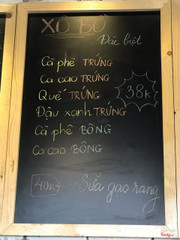 XÔ BỒ
Đặc biệt
Cà phê TRỨNG
Ca cao TRỨNG
Quế TRỨNG
Đậu xanh TRỨNG
38K
Cà phê BÔNG
Ca cao BÔNG
40K
Sữa gạo rang